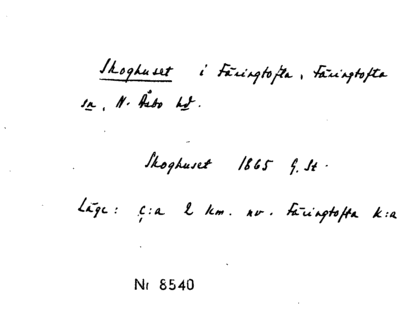 Skoghuset i Färingtofta, Färingtofta
sn, N. Åsbo hd.
Skoghuset 1865 G. St.
Läge: c:a 2 km. nv. Färingtofta k:a
Nr 8540